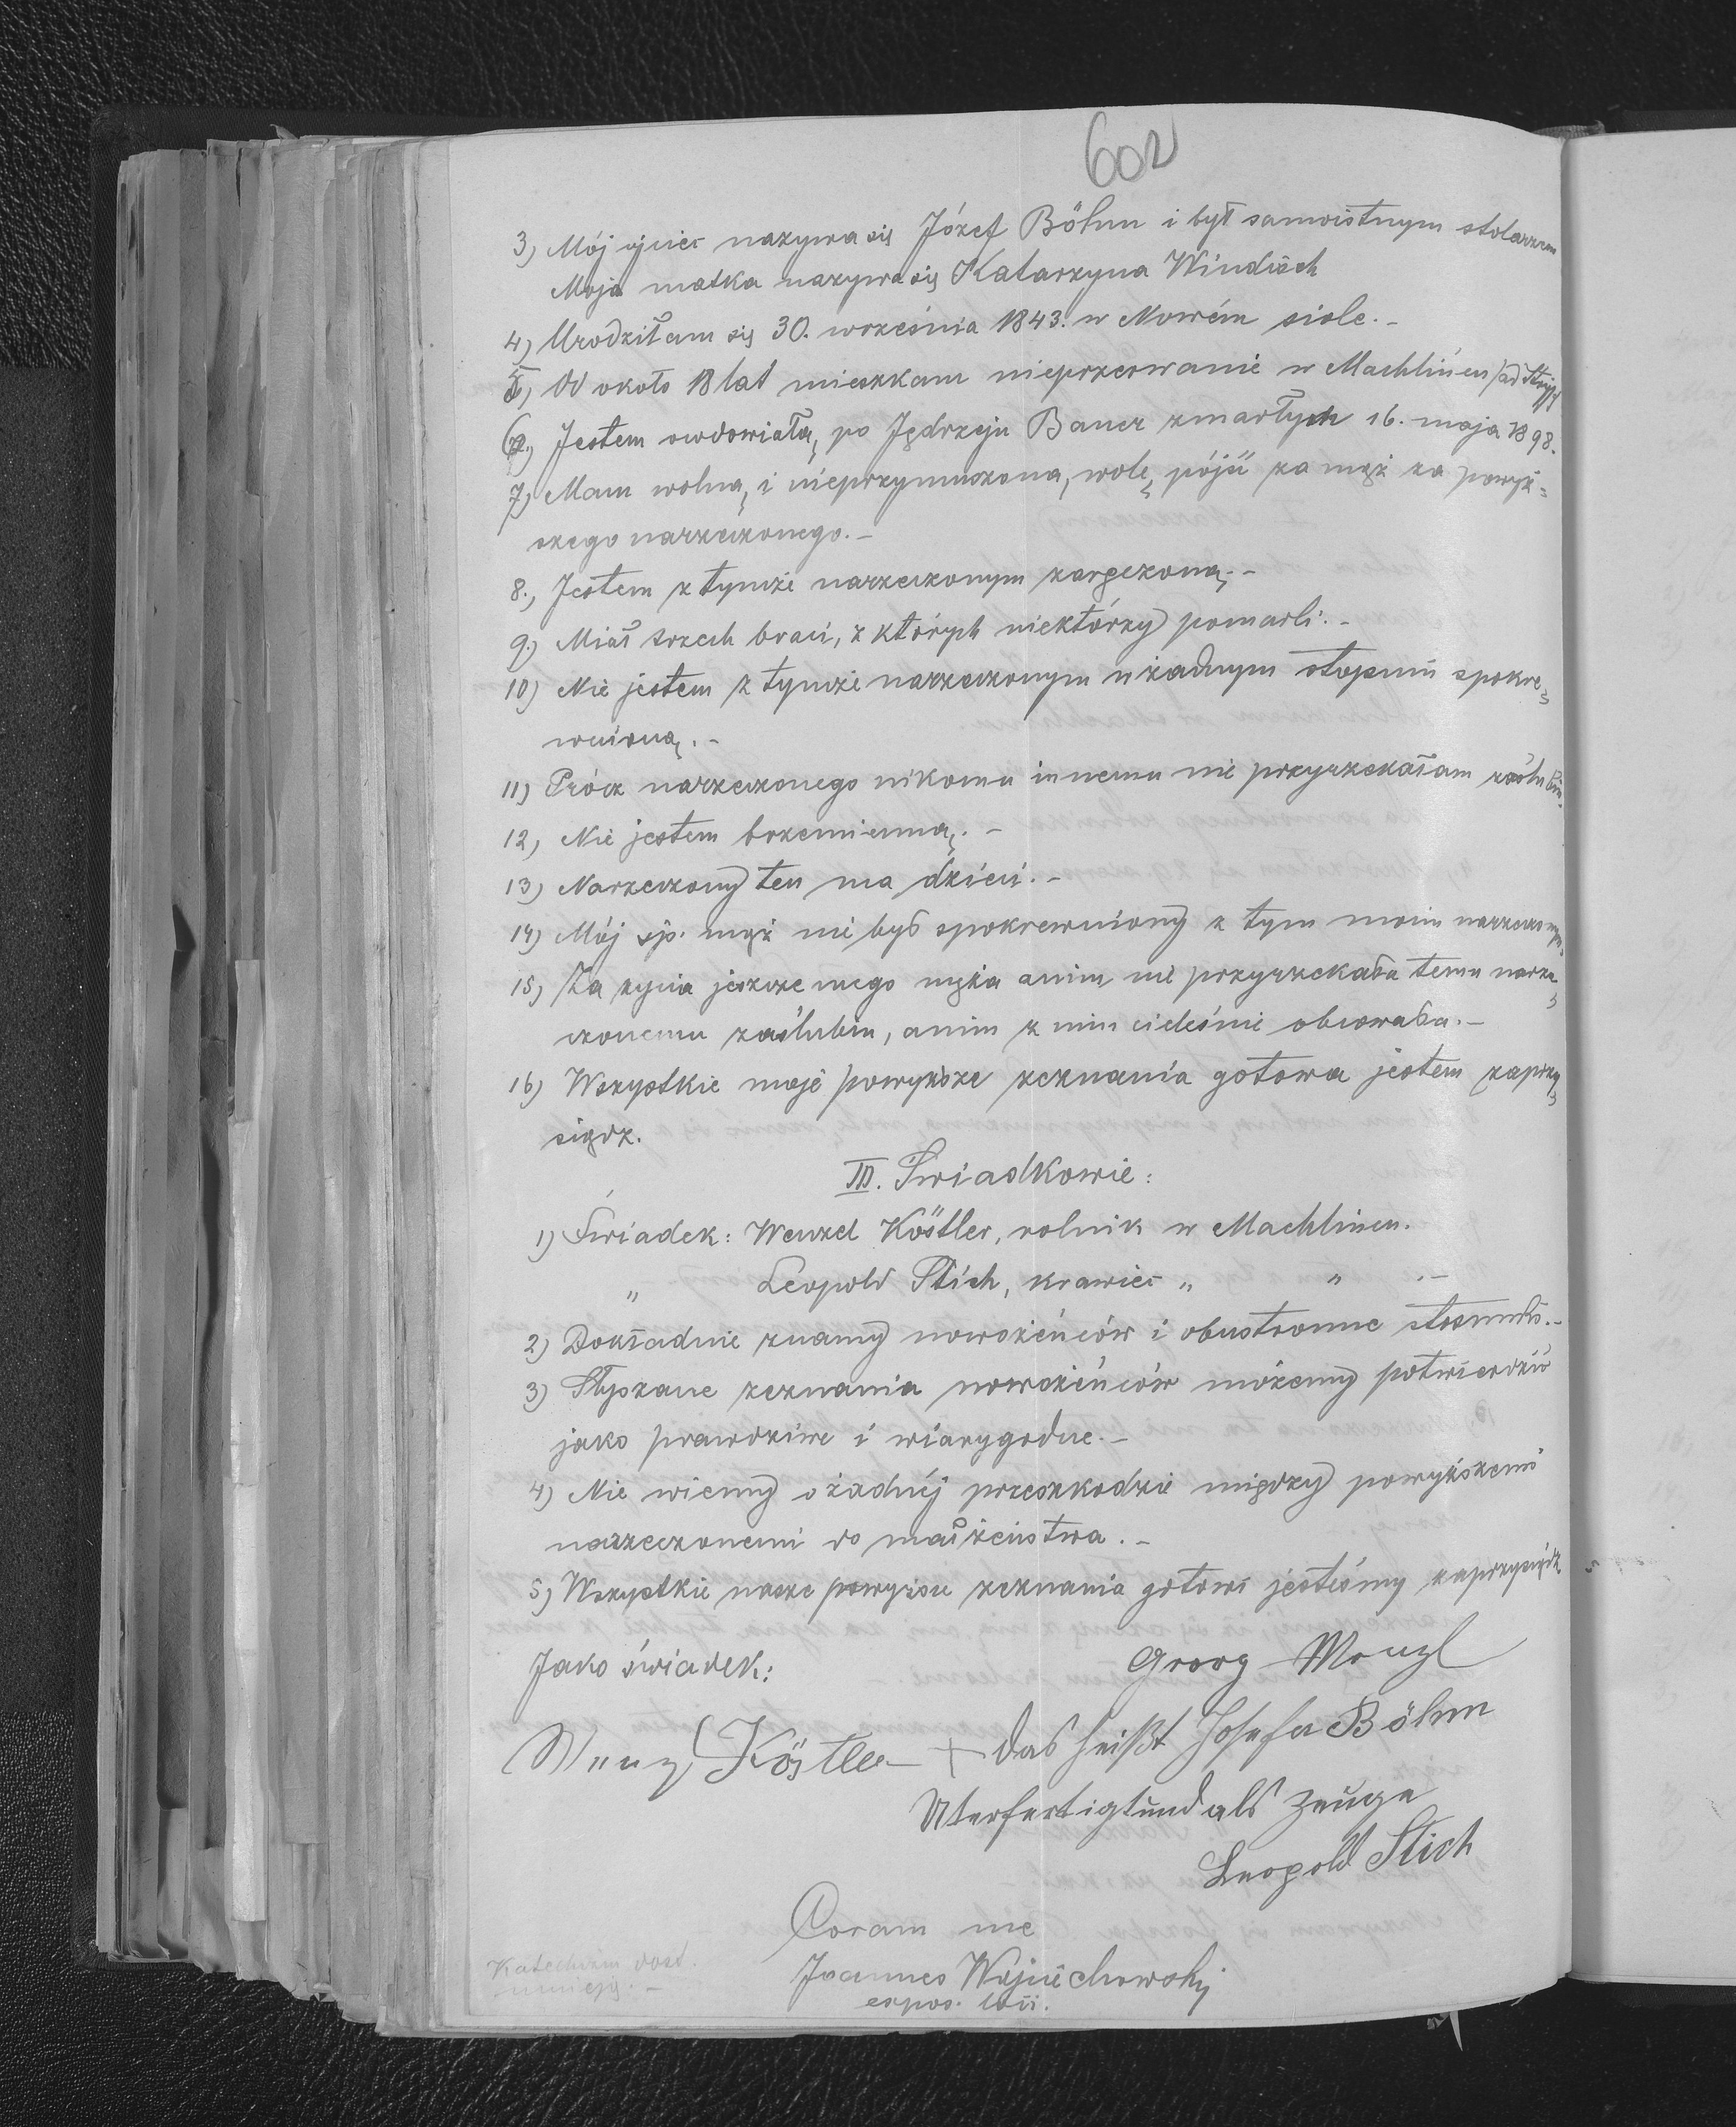 602
3) Mój ojciec nazywa się Józef Böhm i był samoistnym stolarzem
Moja matka nazywa się Katarzyna Windisch
4) Urodziłam się 30. września 1843. w Nowém siole. -
5) Od około 18 lat mieszkam nieprzerwanie w Machlińcu / ad Stryj /
6.) Jestem owdowiałą, po Jędrzeju Bauer zmarłych 16. maja 1898.
7) Mam wolną, i nieprzymuszoną, wolę, pójść za mąż za powyż=
szego narzeczonego. -
8., Jestem z tymże narzeczonym zaręczoną. -
9.) Miał trzech braci, z których niektórzy pomarli. -
10) Nie jestem z tymże narzeczonym w żadnym stopniu spokre=
wnioną. -
11) Prócz narzeczonego nikomu innemu nie przyrzekałam zaślubin.
12, Nie jestem brzemienną. -
13) Narzeczony ten ma dzieci. -
14) Mój śp. mąż nie był spokrewniony z tym moim narzeczonym
15) Za życia jeszcze mego męża anim nie przyrzekała temu narze=
czonemu zaślubin, anim z nim cieleśnie obcowała. -
16) Wszystkie moje powyższe zeznania gotowa jestem zaprzy=
siądz.
III. Świadkowie:
1) Świadek: Wenzel Köstler, rolnik w Machlińcu.
" Leopold Stich, krawiec " " . -
2) Dokładnie znamy nowożeńców i obustronne stosunki. -
3) Słyszane zeznania nowożeńców możemy potwierdzić
jako prawdziwe i wiarygodne. -
4) Nie wiemy o żadnéj przeszkodzie między powyższemi
narzeczonemi do małżeństwa. -
5) Wszystkie nasze powyższe zeznania gotowi jesteśmy zaprzysiądz
Jako świadek: Georg Menzl
Wenzl Köstler + das heißt Josefa Böhm
Uterfertigt und als Zeuge
Leopold Stich
Coram me
Joannes Wojciechowski
expos. loci.
Katechizm dost.
umieją. -